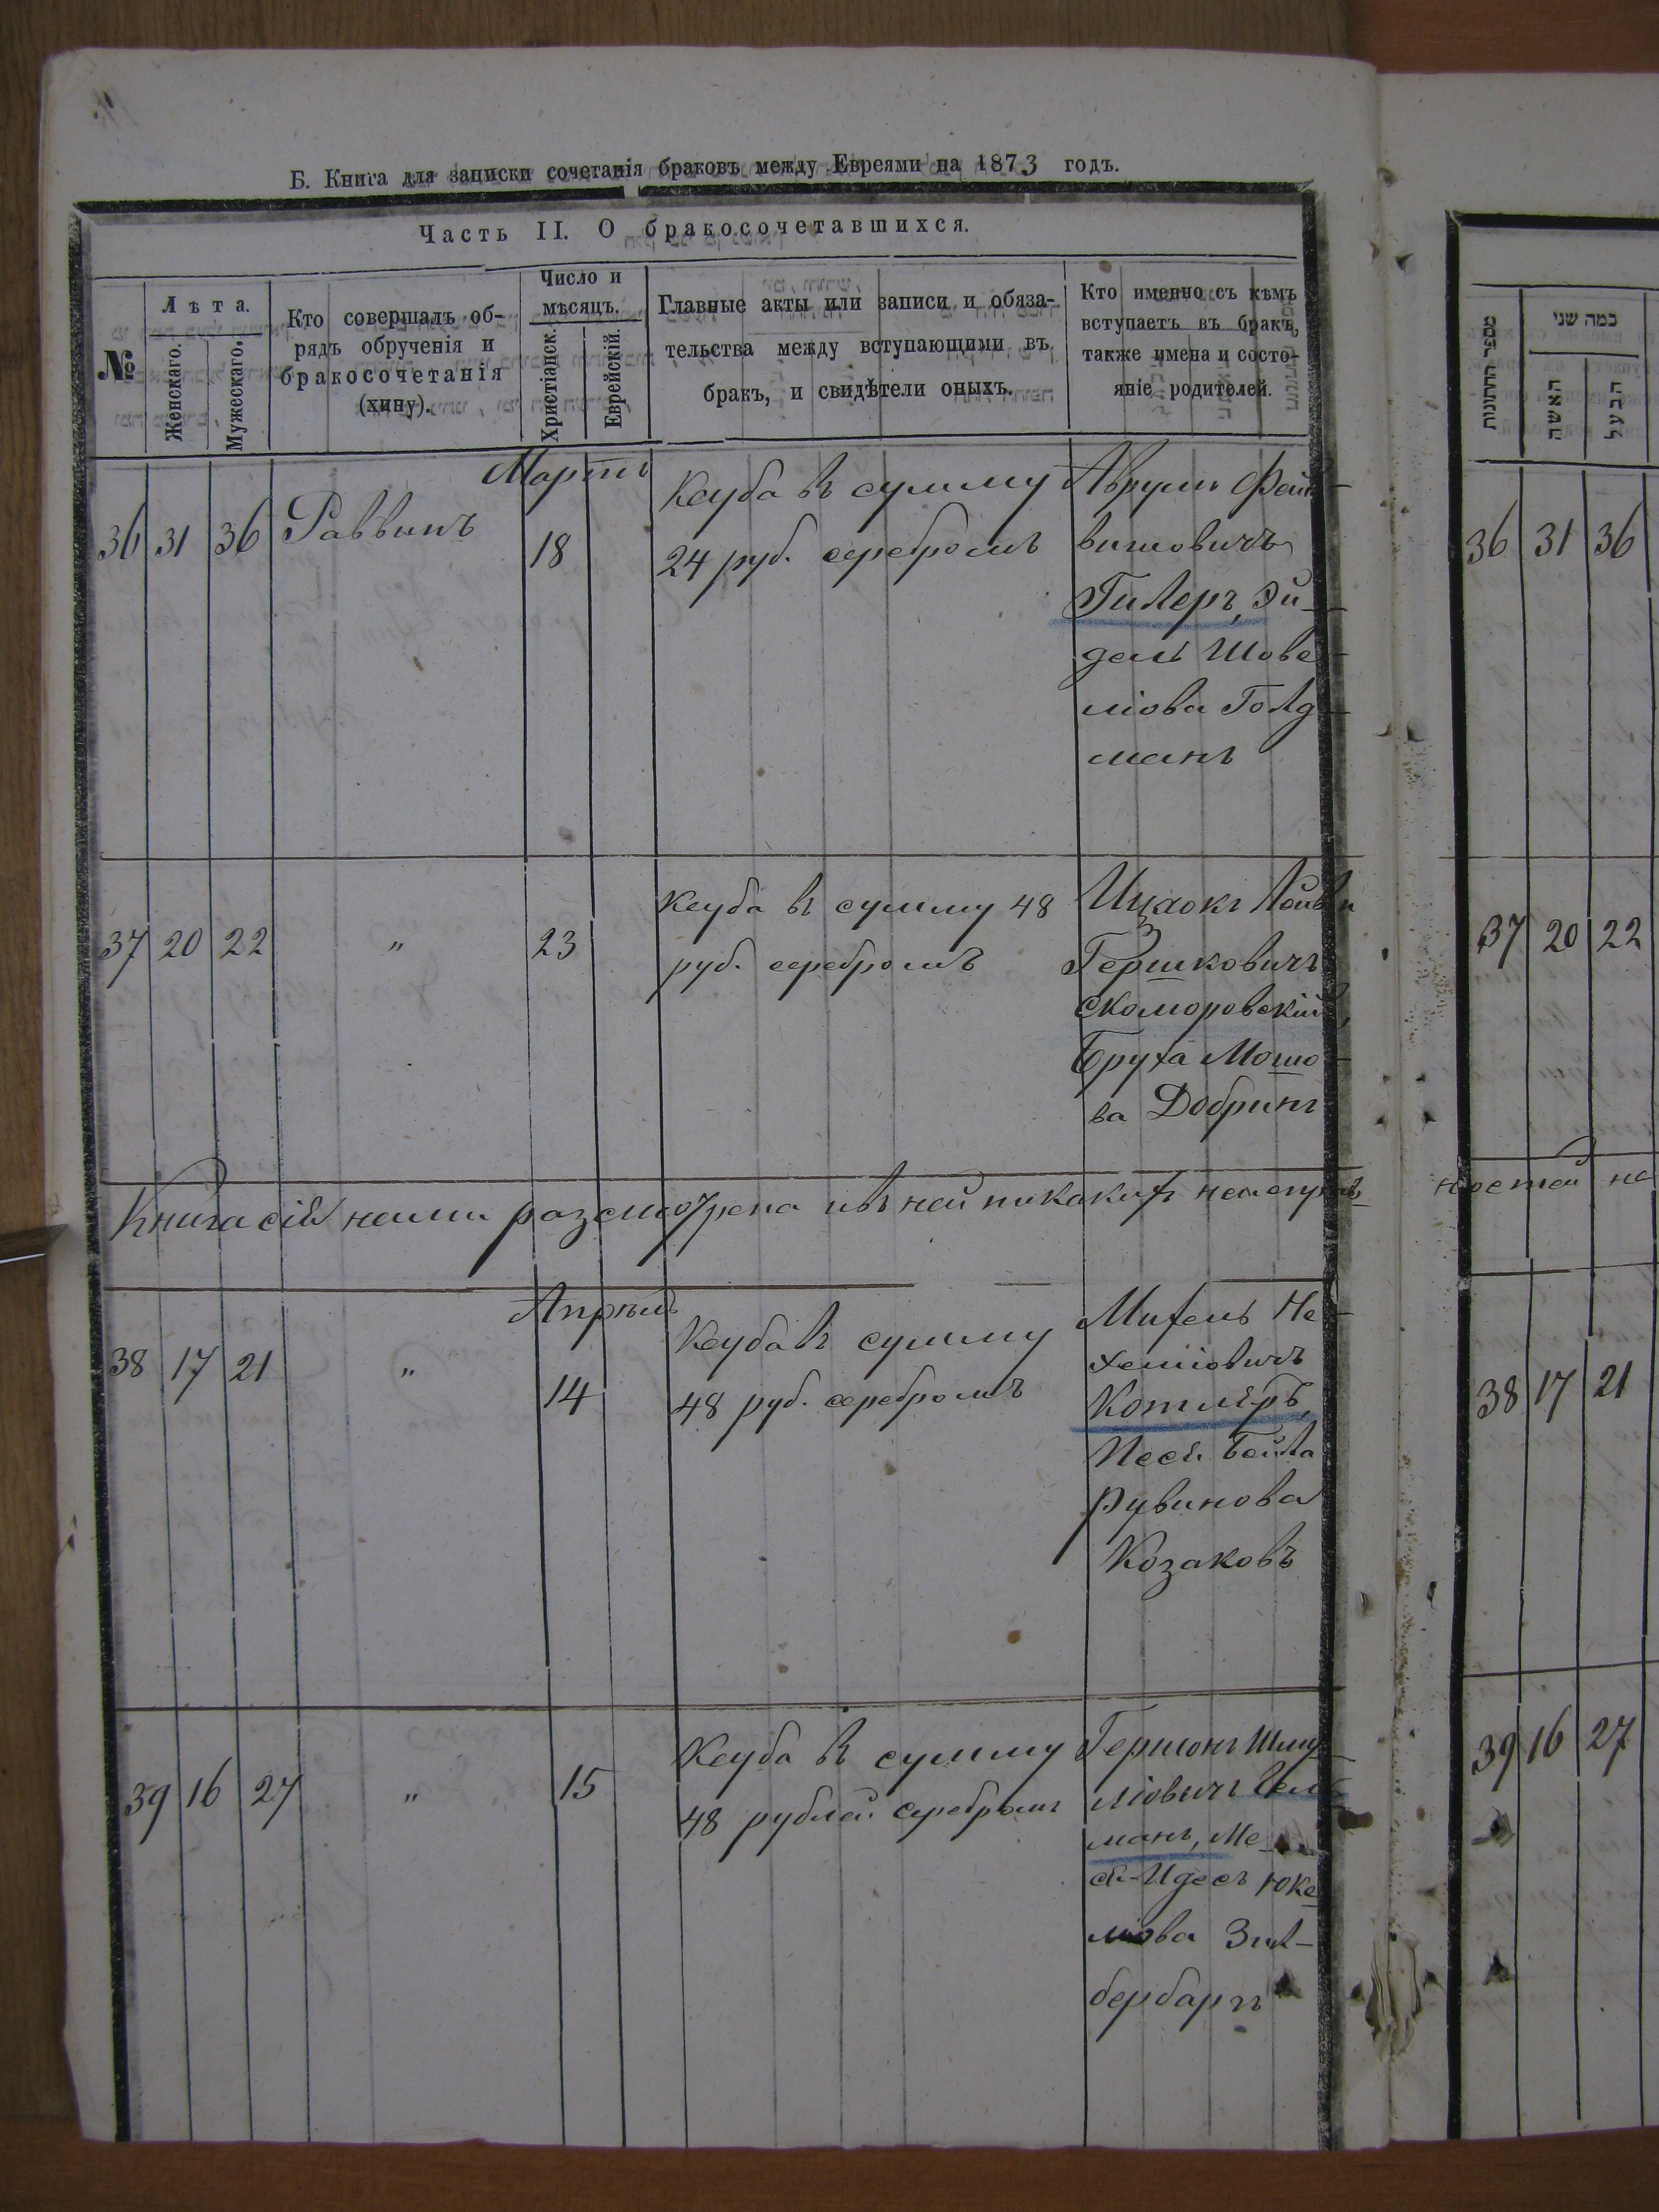 Б. Книга для записки сочетанія браковъ между Евреями на 1873 годъ.
Часть II. О бракосочетавшихся.
№
Лѣта.
Женскаго.
Мужескаго.
Кто совершалъ об-
рядъ обрученія и
бракосочетанія
(хипу).
Число и
мѣсяцъ.
Христіанск.
Еврейскій.
Главные акты или записи и обяза-
тельства между вступающими въ
бракъ, и свидѣтели оныхъ.
Кто именно съ кѣмъ
вступаетъ въ бракъ,
также имена и состо-
яніе родителей.
Мартъ
36 31 36 Раввинъ 18
Ксуба въ сумму
24 руб. серебромъ
Аврумъ Фай-
вишовичъ
Гилеръ, Эй-
дель Шове-
мова Голд-
манъ
37 20 22 " 23
Ксуба въ сумму 48
руб. серебромъ
Ицзокъ
Гершковичъ
Скоморовскій,
Бруха Мошо-
ва Добринъ
Книга сія нами разсмотрена и въ ней никакихъ неисправ-
ностей не
Апрѣль
38 17 21 " 14
Ксуба въ сумму
48 руб. серебромъ
Михель Не-
хеміовичъ
Котляръ,
Песя Бейла
Рувинова
Козаковъ
39 16 27 " 15
Ксуба въ сумму
48 рублей серебромъ
Гершонъ Шму-
ліовичъ Гель-
манъ, Ме-
ся-Идесъ Юке-
лiова Зил-
бербаргъ
מספר החתונות
כמה שני
האשה
הבעל
36 31 36
37 20 22
38 17 21
39 16 27